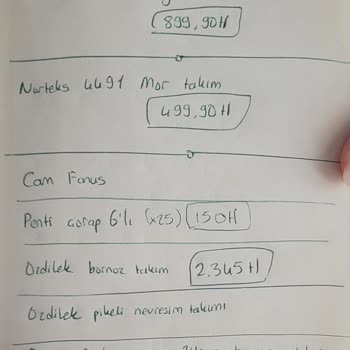 899,90tl
Norteks 4491 Mor takım
499,90tl
Cam Fanus
Penti çorap 6'lı (x25) 150tl
Özdilek bornoz takım 2.345tl
Özdilek pikeli nevresim takımı